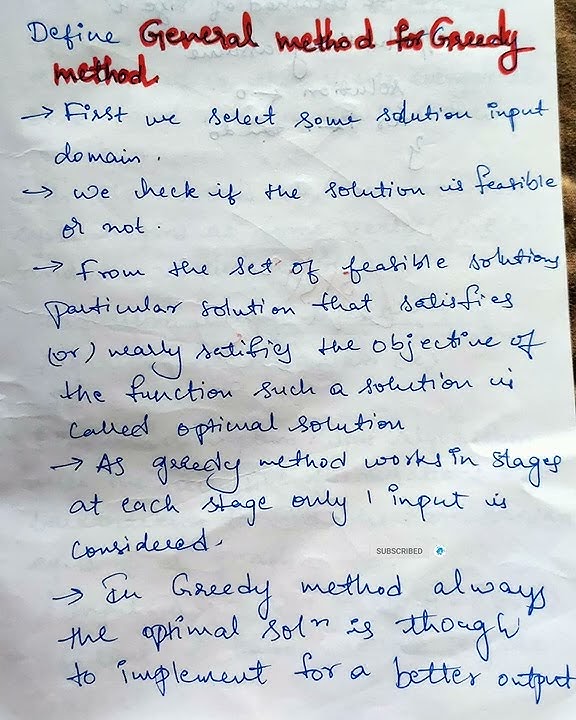 Define General method for Greedy
method.
→ First we select some solution input
domain.
→ we check if the solution is feasible
or not.
→ From the set of feasible solutions
particular solution that satisfies
(or) nearly satifies the objective of
the function such a solution is
called optimal solution
→ As greedy method works in stages
at each stage only 1 input is
considered.
SUBSCRIBED
→ In Greedy method always
the optimal solⁿ is though
to implement for a better output